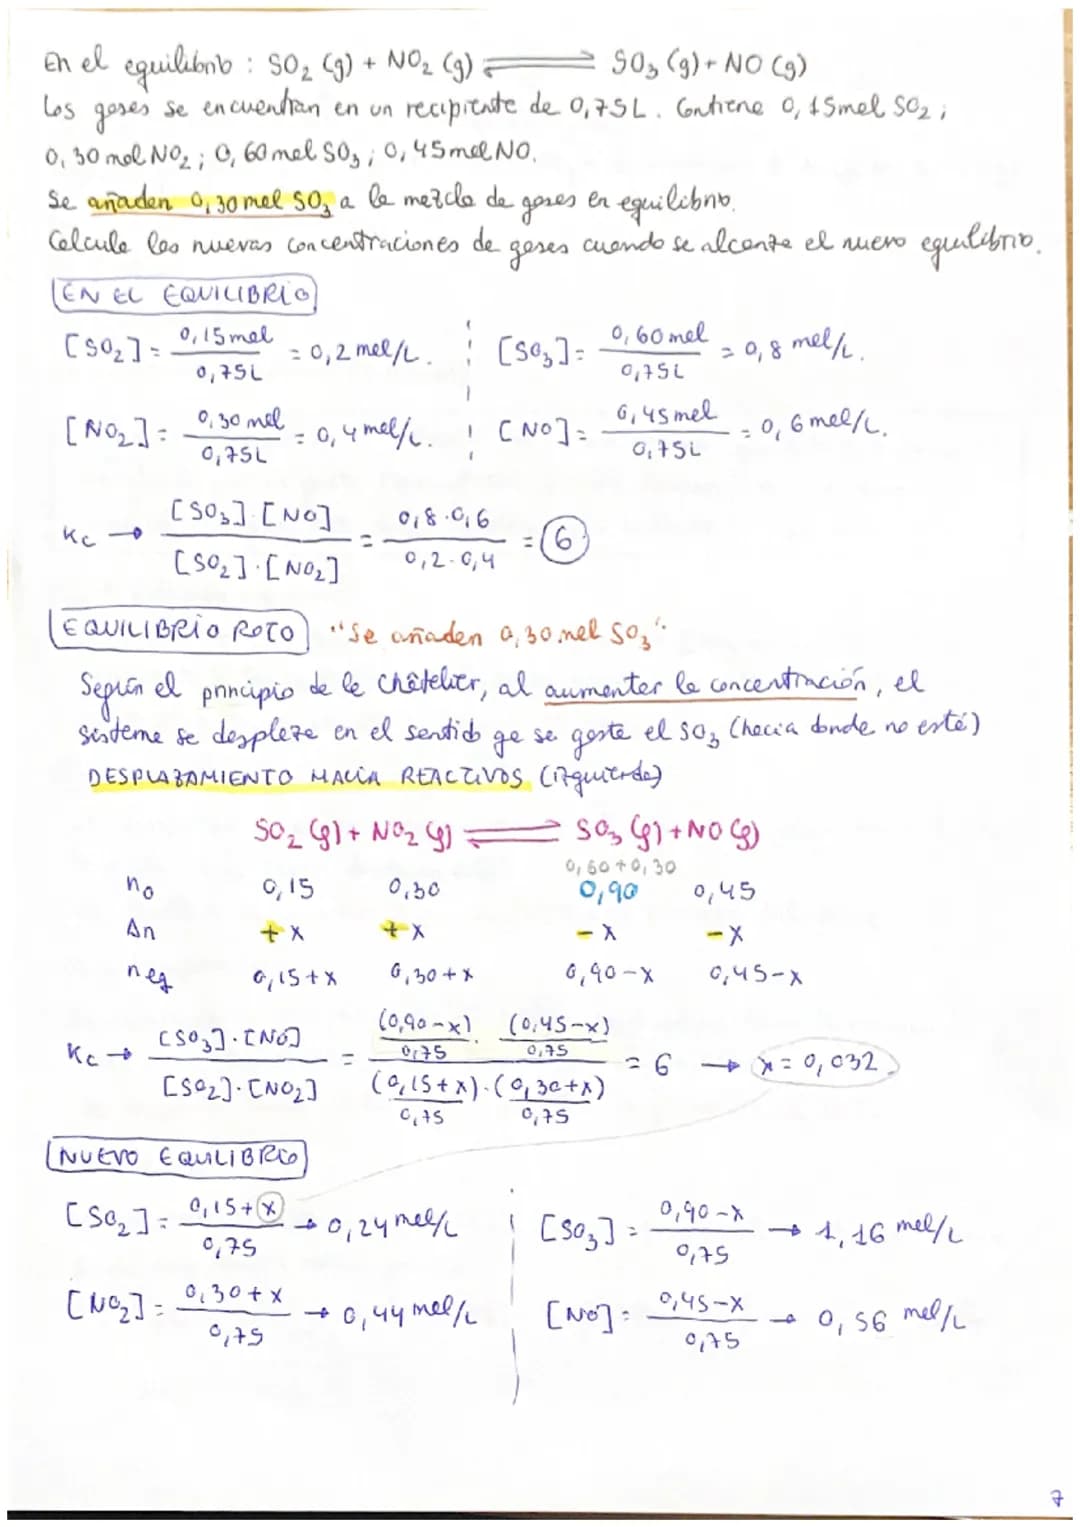 En el equilibrio : SO₂ (g) + NO₂ (g) ⇌ SO₃ (g) + NO (g)
Los gases se encuentran en un recipiente de 0,75L. Contiene 0,15mol SO₂ ;
0,30 mol NO₂ ; 0,60 mol SO₃ ; 0,45 mol NO.
Se añaden 0,30 mol SO₃ a la mezcla de gases en equilibrio.
Calcule las nuevas concentraciones de gases cuando se alcanza el nuevo equilibrio.
EN EL EQUILIBRIO
[SO₂] = 0,15mol / 0,75L = 0,2 mol/L. [SO₃] = 0,60 mol / 0,75L = 0,8 mol/L.
[NO₂] = 0,30 mol / 0,75L = 0,4 mol/L. [NO] = 0,45 mol / 0,75L = 0,6 mol/L.
Kc → [SO₃]·[NO] / [SO₂]·[NO₂] = 0,8·0,6 / 0,2·0,4 = 6
EQUILIBRIO ROTO "Se añaden 0,30 mol SO₃".
Según el principio de le Châtelier, al aumentar la concentración, el
sistema se desplaza en el sentido qe se gaste el SO₃ (hacia donde no esté)
DESPLAZAMIENTO HACIA REACTIVOS (izquierda)
SO₂ (g) + NO₂ (g) ⇌ SO₃ (g) + NO (g)
0,60 + 0,30
n₀ 0,15 0,30 0,90 0,45
Δn + x + x - x - x
neq 0,15+x 0,30+x 0,90-x 0,45-x
Kc → [SO₃]·[NO] / [SO₂]·[NO₂] = (0,90-x)/0,75 · (0,45-x)/0,75 / (0,15+x)/0,75 · (0,30+x)/0,75 = 6 → x = 0,032
NUEVO EQUILIBRIO
[SO₂] = 0,15+x / 0,75 → 0,24 mol/L [SO₃] = 0,90-x / 0,75 → 1,16 mol/L
[NO₂] = 0,30+x / 0,75 → 0,44 mol/L [NO] = 0,45-x / 0,75 → 0,56 mol/L
7